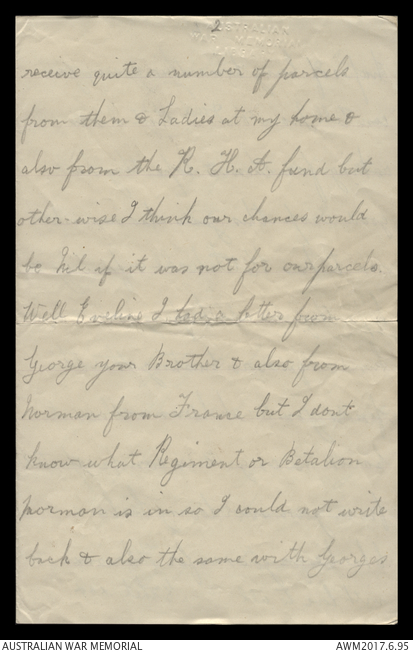 2
AUSTRALIAN
WAR MEMORIAL
receive quite a number of parcels
from them & Ladies at my home &
also from the R. H. A. fund but
other-wise I think our chances would
be Nil if it was not for our parcels.
Well Eveline I had a letter from
George your Brother & also from
Norman from France but I dont
know what Regiment or Betalion
Norman is in so I could not write
back & also the same with Georges
AUSTRALIAN WAR MEMORIAL
AWM2017.6.95